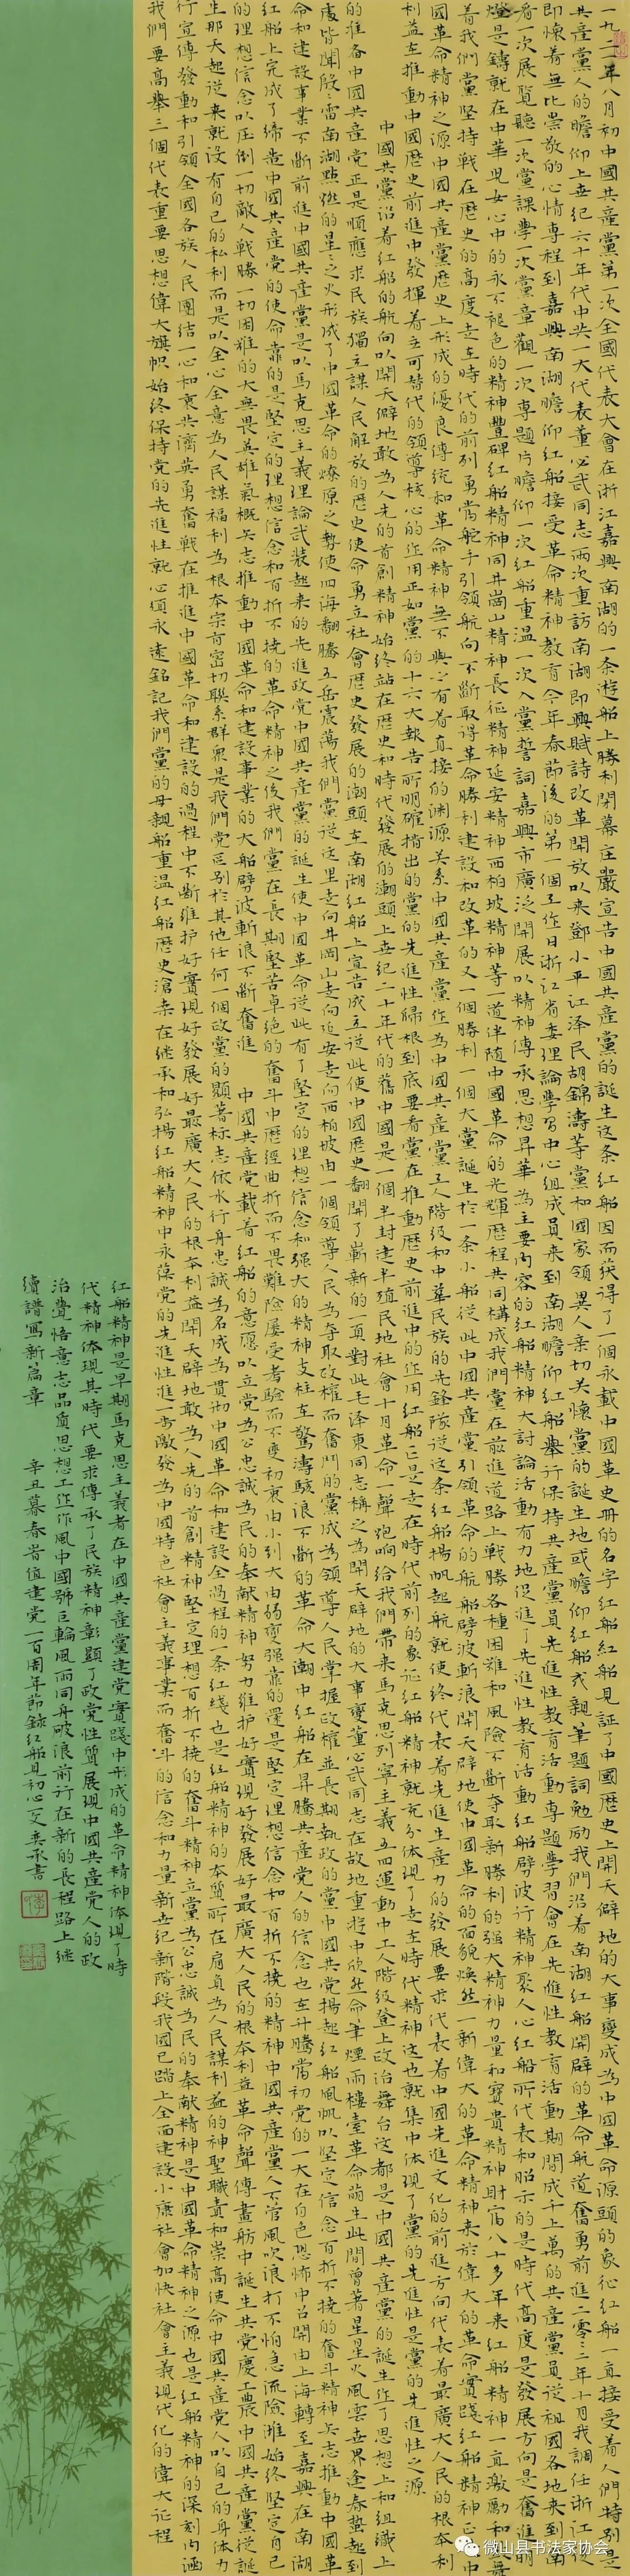 一九二一年八月初中國共產黨第一次全國代表大會在浙江嘉興南湖的一条遊船上勝利閉幕庄嚴宣告中國共產黨的誕生这条紅船因而获得了一個永載中國革史冊的名字紅船紅船見証了中國歷史上開天僻地的大事變成為中國革命源頭的象征紅船一直接受着人們特别是
共產黨人的瞻仰上世纪六十年代中共一大代表董必武同志兩次重訪南湖即興賦詩改革開放以来鄧小平江泽民胡錦濤等黨和國家領異人亲切关懷黨的誕生地或瞻仰紅船或親筆題詞勉励我們沿着南湖紅船開辟的革命航道奮勇前進二零零二年十月我調任浙江後
即懷着無比崇敬的心情專程到嘉興南湖瞻仰紅船接受革命精神教育今年春節後的第一個工作日浙江省委理論學習中心組成員来到南湖瞻仰紅船舉行保持共產黨員先進性教育活動專題學習會在先進性教育活動期間成千上萬的共產黨員從祖國各地来到南湖
看一次展覧聽一次黨課學一次黨章觀一次專題片瞻仰一次紅船重温一次入黨誓詞嘉興市廣泛開展以精神傳承思想昇華為主要内容的紅船精神大討論活動有力地促進了先進性教育活動紅船劈波行精神聚人心紅船所代表和昭示的是時代高度是發展方向是奮進明
燈是鑄就在中華児女心中的永不褪色的精神豐碑紅船精神同井崗山精神長征精神延安精神西柏坡精神等一道伴随中國革命的光輝歷程共同構成我們黨在前進道路上戰勝各種困難和風險不斷夺取新勝利的强大精神力量和寶貴精神財富八十多年来紅船精神一直激勵和鼓舞
着我們黨堅持戦在歷史的高度走在時代的前列勇當舵手引領航向不斷取得革命勝利建設和改革的又一個勝利一個大黨誕生於一条小船從此中國共產黨引領革命的航船劈波斬浪開天辟地使中國革命的面貌焕然一新偉大的革命精神来於偉大的革命實踐紅船精神正是中
國革命精神之源中國共產黨歷史上形成的優良傳統和革命精神無不與之有着直接的渊源关系中國共產黨作為中國共產黨工人階级和中華民族的先鋒隊從这条紅船揚帆起航就使终代表着先進生產力的發展要求代表着中國先進文化的前進方向代表着最廣大人民的根本利
利益在推動中國歷史前進中發揮着至可替代的領導核心的作用正如黨的十六大報告所明確指出的黨的先進性歸根到底要看黨在推動歷史前進中的作用紅船已是走在時代前列的象征紅船精神就充分体現了走在時代精神这也就集中体現了黨的先進性是黨的先進性之源
中國共黨沿着紅船的航向以開天僻地敢為人先的首創精神始终站在歷史和時代發展的潮頭上世纪二十年代的舊中國是一個半封建半殖民地社會十月革命一聲炮响给我們帶来馬克思列寧主義五四運動中工人階级登上政治舞台这都是中國共產黨的誕生作了思想上和組織上
的准备中國共產党正是順應求民族獨立謀人民解放的歷史使命勇立社會歷史發展的潮頭在南湖紅船上宣告成立從此使中國歷史翻開了嶄新的一頁對此毛泽東同志稱之為開天辟地的大事變董必武同志在故地重遊中欣然命筆煙雨樓臺革命萌生此間曾著星星火風雲世界逢春蟄起到
處皆聞殷殷雷南湖點燃的星星之火形成了中國革命的燎原之勢使四海翻騰五岳震蕩我們黨從这里走向井岡山走向延安走向西柏坡由一個領導人民為夺取政權而奮鬥的黨成為領導人民掌握政權並長期執政的黨中國共党揚起紅船風帆以堅定信念百折不撓的奮斗精神矢志推動中國革
命和建設事業不斷前進中國共產黨是以馬克思主義理論武裝起来的先進政党中國共產黨的誕生使中國革命從此有了堅定的理想信念和强大的精神支柱在驚濤駭浪不斷的革命大潮中紅船在昇騰共產党人的信念也在升騰當初党的一大在白色恐怖中召開由上海轉至嘉興在南湖
紅船上完成了缔造中國共產党的使命靠的是堅定的理想信念和百折不撓的革命精神之後我們黨在長期堅苦卓绝的奮斗中歷經曲折而不畏難險屡受考驗而不變初衷由小到大由弱變强靠的還是堅定理想信念和百折不撓的精神中國共產黨人不管風吹浪打不怕急流險滩始终堅定自己
的理想信念以压倒一切敵人戰勝一切困難的大無畏英雄氣概矢志推動中國革命和建設事業的大船劈波斬浪不斷奮進　中國共產党載着紅船的意愿以立党為公忠誠為民的奉献精神努力维护好實現好發展好最廣大人民的根本利益革命聲傳畫舫中誕生共党慶工農中國共產黨從誕
生那天起從来就没有自己的私利而是以全心全意為人民謀福利為根本宗旨密切聯系群衆是我們党區别於其他任何一個政黨的顯著标志依水行舟忠誠為名成為貫彻中國革命和建設全過程的一条红线也是紅船精神的本質所在肩負為人民謀利益的神聖職責和崇高使命中國共產党人以自己的身体力
行宣傳發動和引領全國各族人民團结一心和衷共濟英勇奮戦在推進中國革命和建設的過程中不斷维护好實現好發展好最廣大人民的根本利益開天辟地敢為人先的首創精神堅定理想百折不撓的奮斗精神立黨為公忠誠為民的奉献精神是中國革命精神之源也是紅船精神的深刻内涵
我們要高舉三個代表重要思想偉大旗帜始终保持党的先進性就必須永遠銘記我們黨的母親船重温紅船歷史滄桑在继承和弘揚紅船精神中永葆党的先進性進一步激發為中國特色社會主義事業而奮斗的信念和力量新世纪新階段我國已踏上全面建設小康社會加快社會主義現代化的偉大征程
紅船精神是早期馬克思主義者在中國共產黨建党實踐中形成的革命精神体現了時
代精神体現其時代要求傳承了民族精神彰顯了政党性質展現中國共產党人的政
治覺悟意志品質思想工作作風中國號巨輪風雨同舟破浪前行在新的長程路上继
續譜寫新篇章　辛丑暮春省值建党一百周年節錄紅船見初心文奕承書
微山县书法家协会